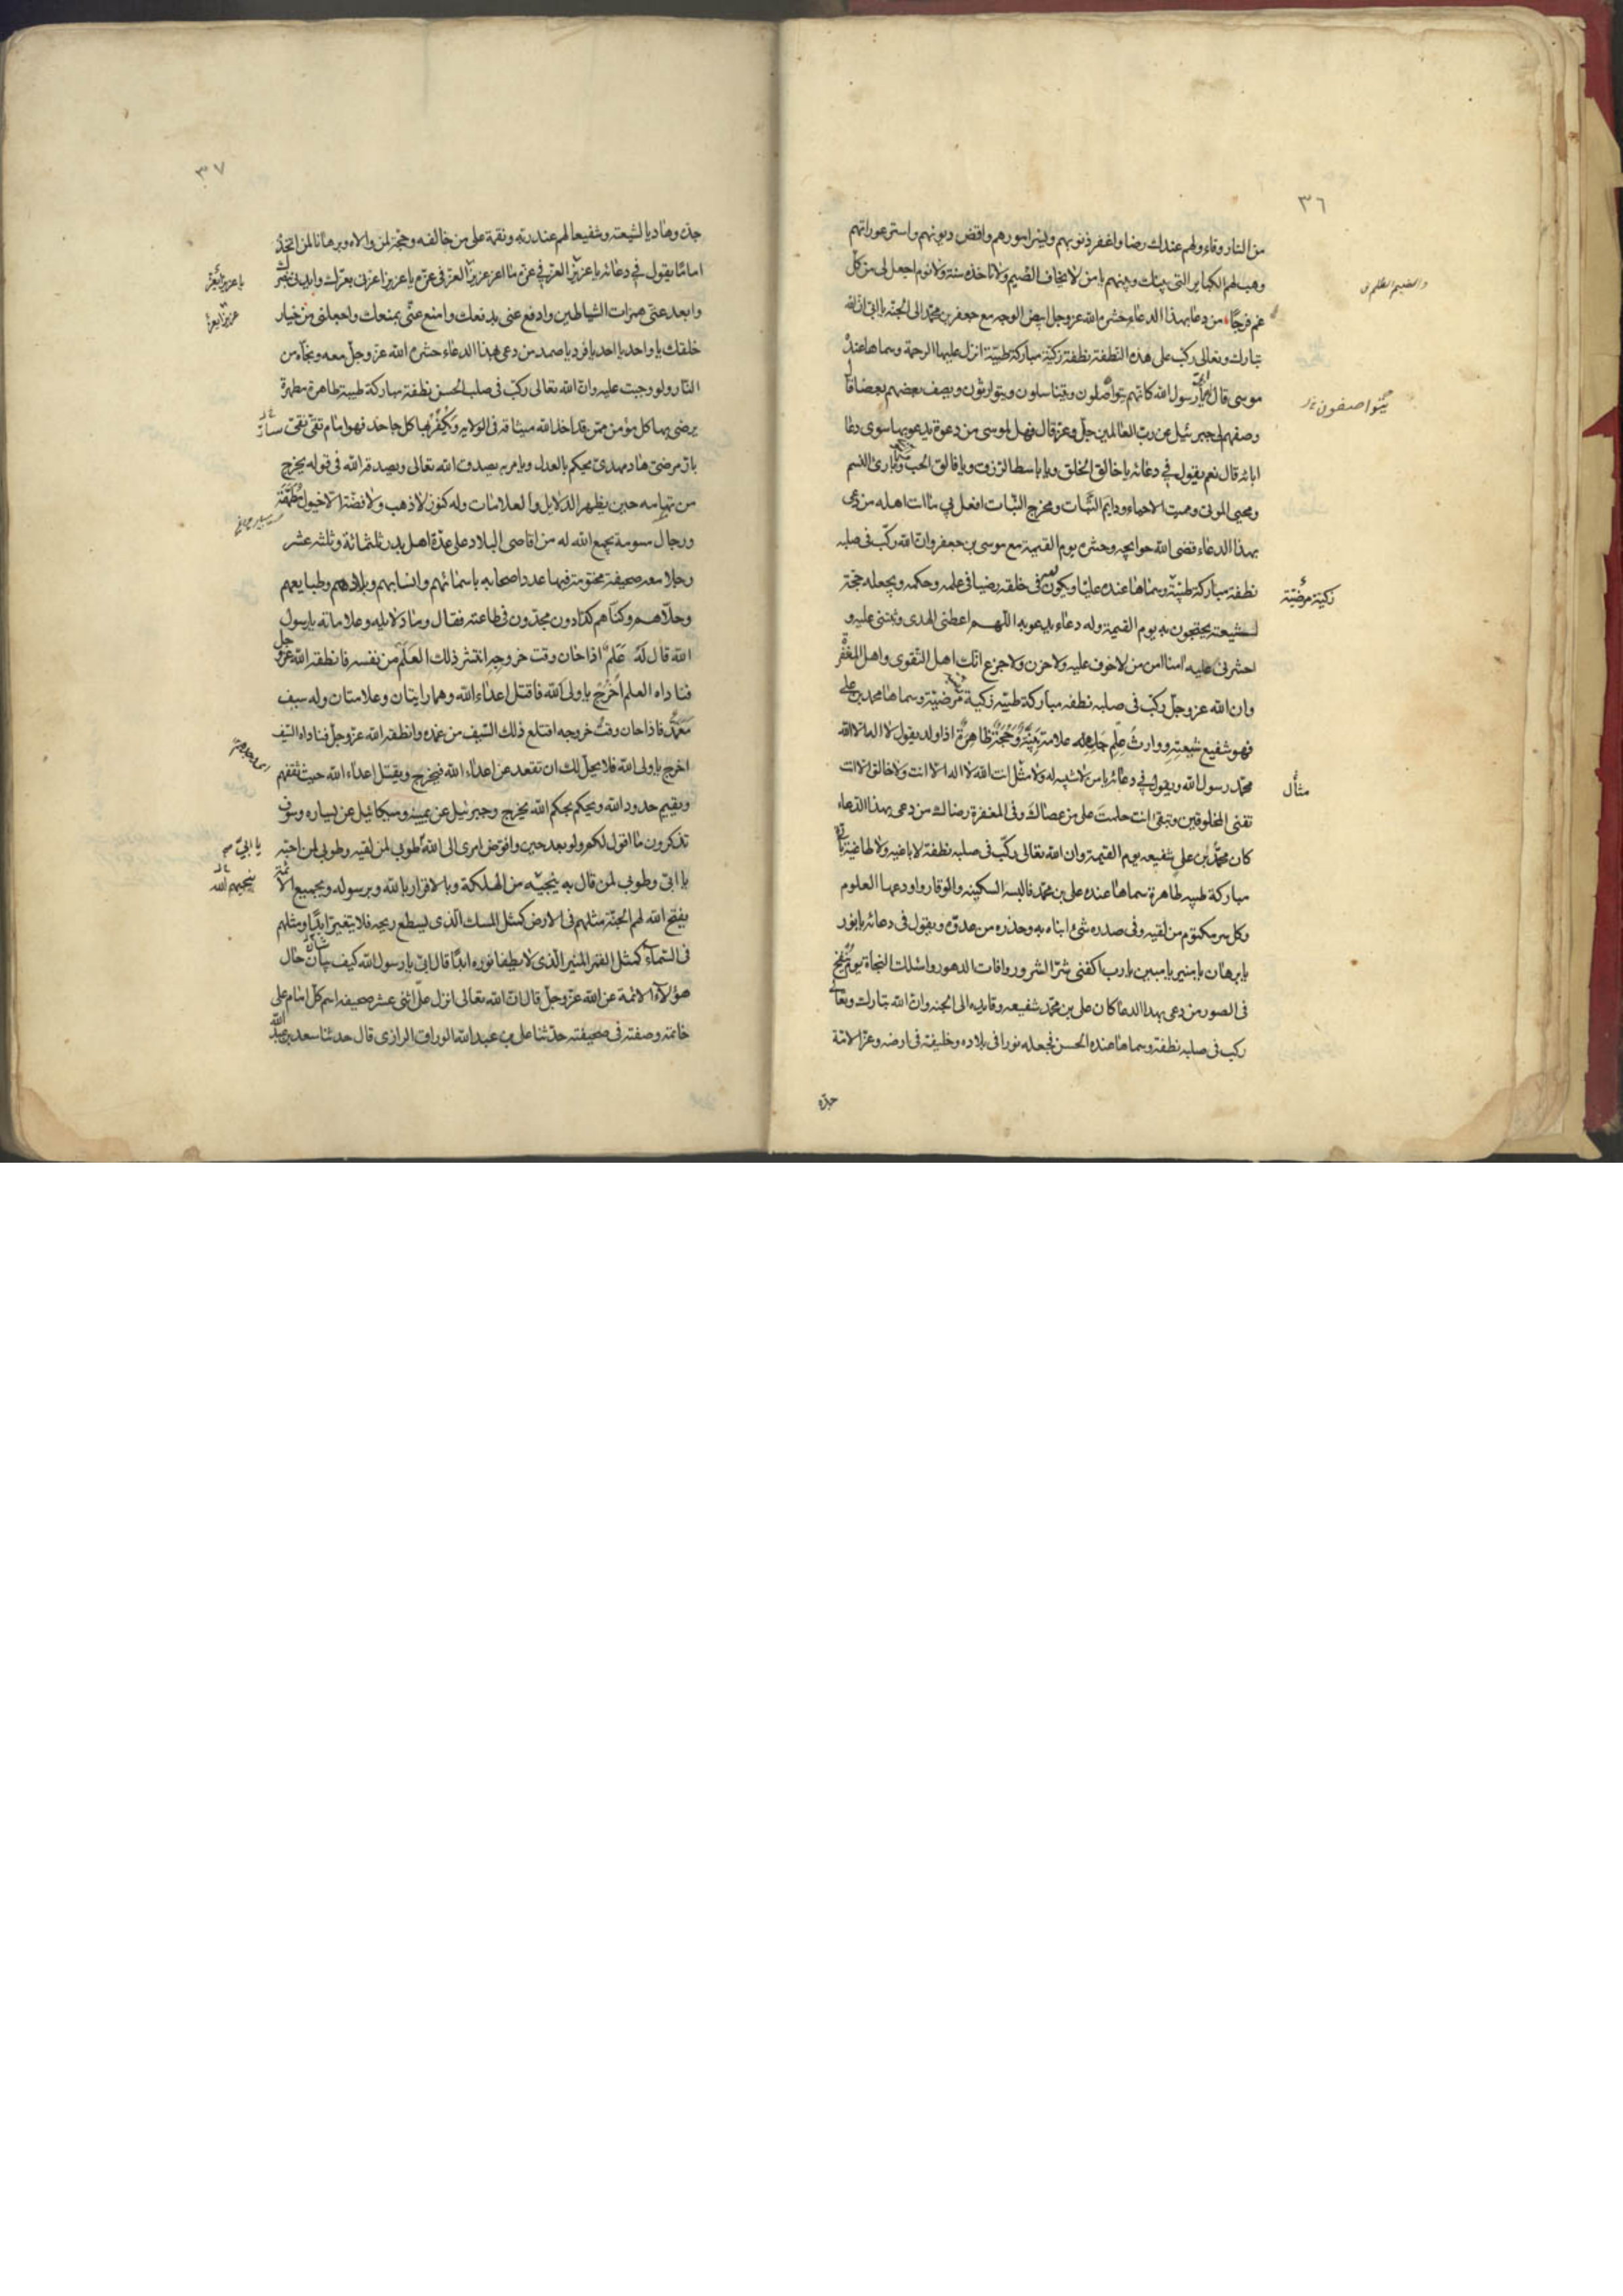 ٣٦
من النار وقاء ولهم عندك رضا واغفر ذنوبهم ويسر امورهم واقض ديونهم واستر عوراتهم
وهب لهم الكباير التى بينك وبينهم يا من لا يخاف الضيم ولا تاخذه سنة ولا نوم اجعل لى من كل
غم فرجا من دعا بهذا الدعاء حشره الله عز وجل ابيض الوجه مع جعفر بن محمد الى الجنة يا ابى ان الله
تبارك وتعالى ركب على هذه النطفة نطفة زكية مباركة طيبة انزل عليها الرحمة وسماها عنده
موسى قال يا رسول الله كانهم يتواصلون ويتناسلون ويتوارثون ويصف بعضهم بعضا قال
وصفهم لى جبرئيل عن رب العالمين جل وعز قال فهل لموسى من دعوة يدعو بها سوى دعاء
ابائه قال نعم يقول فى دعائه يا خالق الخلق ويا باسط الرزق ويا فالق الحب وبارئ النسم
ومحيى الموتى ومميت الاحياء ودايم الثبات ومخرج النبات افعل بى ما انت اهله من دعى
بهذا الدعاء قضى الله حوايجه وحشره يوم القيمة مع موسى بن جعفر وان الله ركب فى صلبه
نطفة مباركة طيبة وسماها عنده عليا ويكون لله فى خلقه رضيا فى علمه وحكمه ويجعله حجة
لشيعته يحتجون به يوم القيمة وله دعاء يدعو به اللهم اعطنى الهدى وثبتنى عليه و
احشرنى عليه امنا امن من لا خوف عليه ولا حزن ولا جزع انك اهل التقوى واهل المغفرة
وان الله عز وجل ركب فى صلبه نطفه مباركة طيبة زكية مرضية وسماها محمد بن على
فهو شفيع شيعته ووارث علم جده له علامة بينة وحجة ظاهرة اذا ولد يقول لا اله الا الله
محمد رسول الله ويقول فى دعائه يا من لا شبيه له ولا مثل انت الله لا اله الا انت ولا خالق الا انت
تفنى المخلوقين وتبقى انت حلمت على من عصاك وفى المغفرة رضاك من دعى بهذا الدعاء
كان محمد بن على شفيعه يوم القيمة وان الله تعالى ركب فى صلبه نطفة لا باغيه ولا طاغية بارة
مباركة طيبه طاهرة سماها عنده على بن محمد فالبسه السكينه والوقار واودعها العلوم
وكل سر مكتوم من لقيه وفى صدره شئ انباه به وحذره من عدوه ويقول فى دعائه يا نور
يا برهان يا منير يا مبين يا رب اكفنى شر الشرور وافات الدهور واسئلك النجاة يوم ينفخ
فى الصور من دعى بهذا الدعا كان على بن محمد شفيعه وقايده الى الجنه وان الله تبارك وتعالى
ركب فى صلبه نطفة وسماها عنده الحسن فجعله نورا فى بلاده وخليفة فى ارضه وعزا لامة
جده
يتواصفون
زكية مرضية
مثال
٣٧
جده وهاديا لشيعته وشفيعا لهم عند ربه ونقمة على من خالفه وحجة لمن والاه وبرهانا لمن اتخذه
اماما يقول فى دعائه يا عزيز العز فى عزه ما اعز عزيز العز فى عزه يا عزيز اعزنى بعزك وايدنى بنصرك
وابعد عنى همزات الشياطين وادفع عنى بدفعك وامنع عنى بمنعك واجعلنى من خيار
خلقك يا واحد يا احد يا فرد يا صمد من دعى هذا الدعاء حشره الله عز وجل معه ونجاه من
النار ولو وجبت عليه وان الله تعالى ركب فى صلب الحسن نطفة مباركة طيبة طاهرة مطهرة
يرضى بها كل مؤمن ممن قد اخذ الله ميثاقه فى الولاية ويكفر بها كل جاحد فهو امام تقى نقى سار
بار مرضى هاد مهدى يحكم بالعدل ويامر به يصدق الله تعالى ويصدقه الله فى قوله يخرج
من تهامه حين يظهر الدلايل والعلامات وله كنوز لا ذهب ولا فضة الا خيول مطهمة
ورجال مسومة يجمع الله له من اقاصى البلاد على عدة اهل بدر ثلثمائة وثلثه عشر
رجلا معه صحيفة مختومة فيها عدد اصحابه باسمائهم وانسابهم وبلادهم وطبايعهم
وحلاهم وكناهم كدادون مجدون فى طاعته فقال وما دلايله وعلاماته يا رسول
الله قال له علم اذا حان وقت خروجه انتشر ذلك العلم من نفسه فانطقه الله عز وجل
فناداه العلم اخرج يا ولى الله فاقتل اعداء الله وهما رايتان وعلامتان وله سيف
مغمد فاذا حان وقت خروجه اقتلع ذلك السيف من غمده وانطقه الله عز وجل فناداه السيف
اخرج يا ولى الله فلا يحل لك ان تقعد عن اعداء الله فيخرج ويقتل اعداء الله حيث ثقفهم
ويقيم حدود الله ويحكم بحكم الله يخرج وجبرئيل عن يمينه وميكائيل عن يساره وسوف
تذكرون ما اقول لكم ولو بعد حين وافوض امرى الى الله طوبى لمن لقيه وطوبى لمن احبه
يا ابى وطوبى لمن قال به ينجيه من الهلكة وبالاقرار بالله وبرسوله وبجميع الائمة
يفتح الله لهم الجنة مثلهم فى الارض كمثل المسك الذى يسطع ريحه فلا يتغير ابدا ومثلهم
فى السماء كمثل القمر المنير الذى لا يطفا نوره ابدا قال ابى يا رسول الله كيف بيان حال
هؤلاء الائمة عن الله عز وجل قال ان الله تعالى انزل على اثنى عشر صحيفه اسم كل امام على
خاتمه وصفته فى صحيفته حدثنا على بن عبد الله الوراق الرازى قال حدثنا سعد بن عبد الله
يا ابى
ينجيهم الله